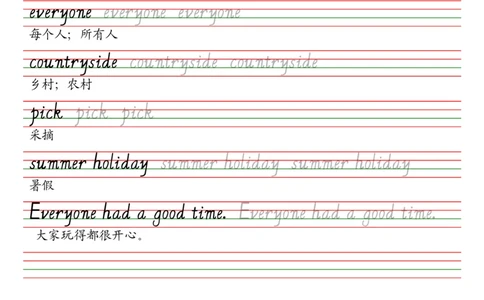 everyone everyone everyone
每个人；所有人
countryside countryside countryside
乡村；农村
pick pick pick
采摘
summer holiday summer holiday summer holiday
暑假
Everyone had a good time. Everyone had a good time.
大家玩得都很开心。